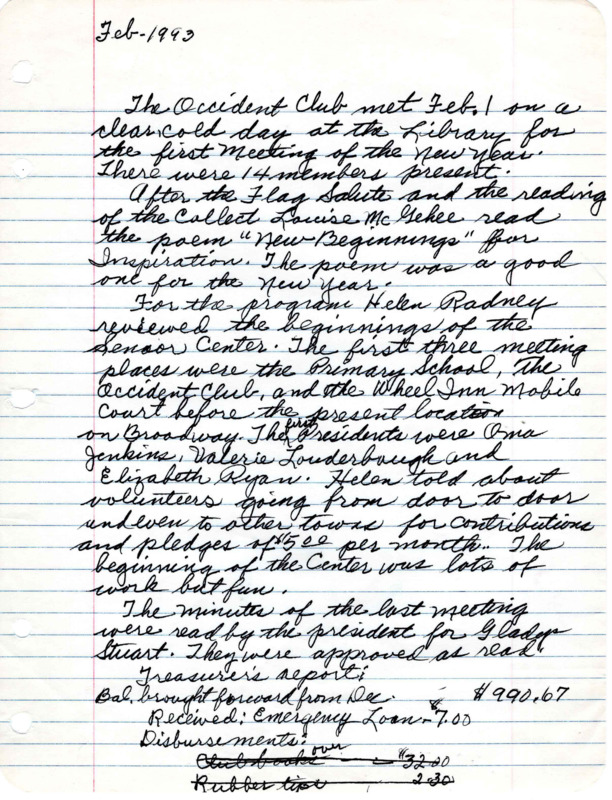 Feb-1993
The Occident Club met Feb. 1 on a
clear cold day at the Library for
the first Meeting of the New Year.
There were 14 members present.
After the Flag Salute and the reading
of the Collect Louise McGehee read
the poem "New Beginnings" for
Inspiration. The poem was a good
one for the New Year.
For the program Helen Radney
reviewed the beginnings of the
Senoor Center. The first three meeting
places were the Primary School, the
Occident Club, and the Wheel Inn Mobile
Court before the present location
on Broadway. The first Presidents were Oma
Jenkins, Valerie Louderbough and
Elizabeth Ryan. Helen told about
volunteers going from door to door
and even to other towns for contributions
and pledges of $5.00 per month.. The
beginning of the Center was lots of
work but fun.
The minutes of the last meeting
were read by the president for Gladys
Stuart. They were approved as read.
Treasurer's report:
Bal. brought forward from Dec. $990.67
Received: Emergency Loan - 7.00
Disbursements: over
Club books $32.00
Rubber tips 2.30